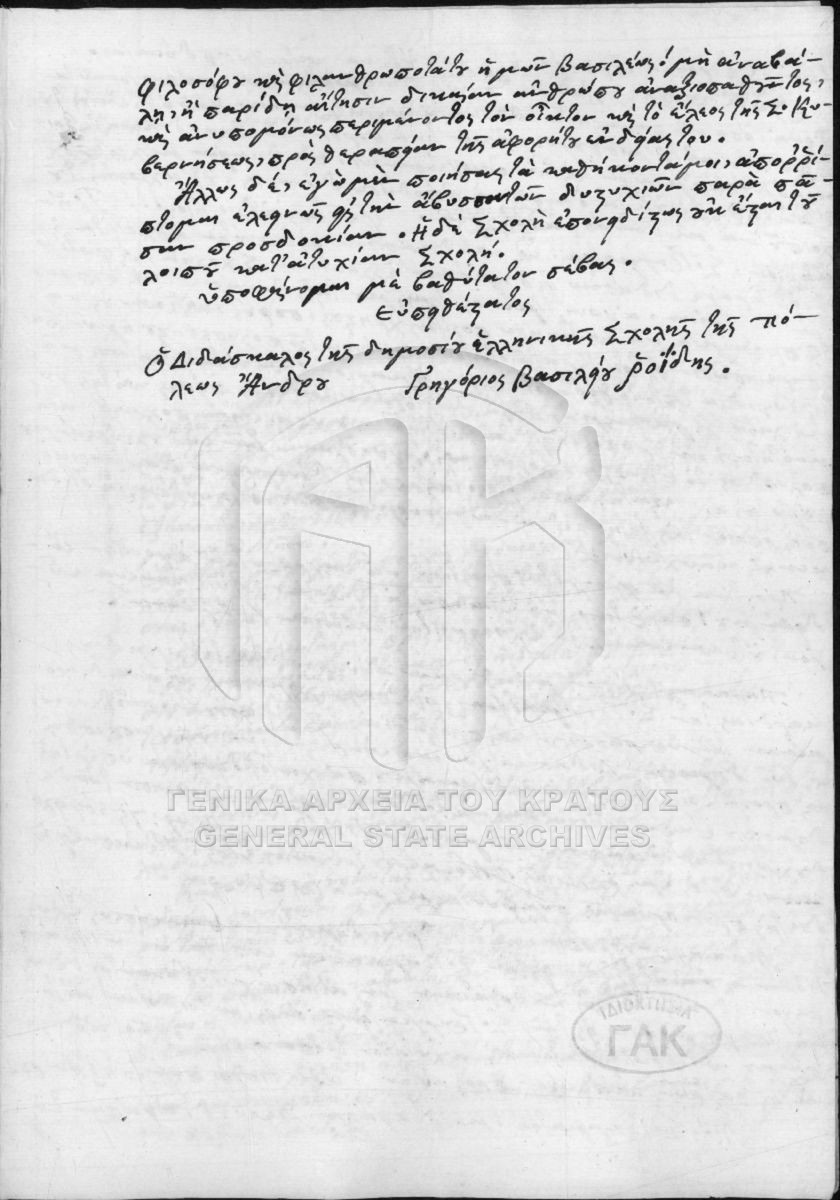 φιλοσόφου καὶ φιλανθρωποτάτου ἡμῶν βασιλέως· ὁ μὴ ἀναβά-
λῃ, ἢ παρίδῃ αἴτησιν δικαίαν ἀνθρώπου ἀναξιοπαθοῦντος,
καὶ ἀνυπομόνως περιμένοντος τὸν οἶκτον καὶ τὸ ἔλεος τῆς Σ. Κυ-
βερνήσεως, πρὸς θεραπείαν τῆς ἀφορήτου ἐνδείας του.
Ἄλλως δέ, ἐγὼ μὲν ποιήσας τὰ καθήκοντά μοι, ἀποῤῥί-
πτομαι ἐλεεινῶς εἰς τὴν ἄβυσσον τῶν δυστυχιῶν παρὰ πᾶ-
σαν προσδοκίαν. Ἡ δὲ Σχολὴ ἐπονειδίστως οὐκ ἔσται τοῦ
λοιποῦ κατ' ἀτυχίαν Σχολή.
ὑποφαίνομαι μὲ βαθύτατον σέβας.
Εὐπειθέστατος
Ὁ Διδάσκαλος τῆς δημοσίου ἑλληνικῆς Σχολῆς τῆς πό-
λεως Ἄνδρου Γρηγόριος Βασιλείου ῥοΐδης.
ΓΕΝΙΚΑ ΑΡΧΕΙΑ ΤΟΥ ΚΡΑΤΟΥΣ
GENERAL STATE ARCHIVES
ΙΔΙΟΚΤΗΣΙΑ
ΓΑΚ